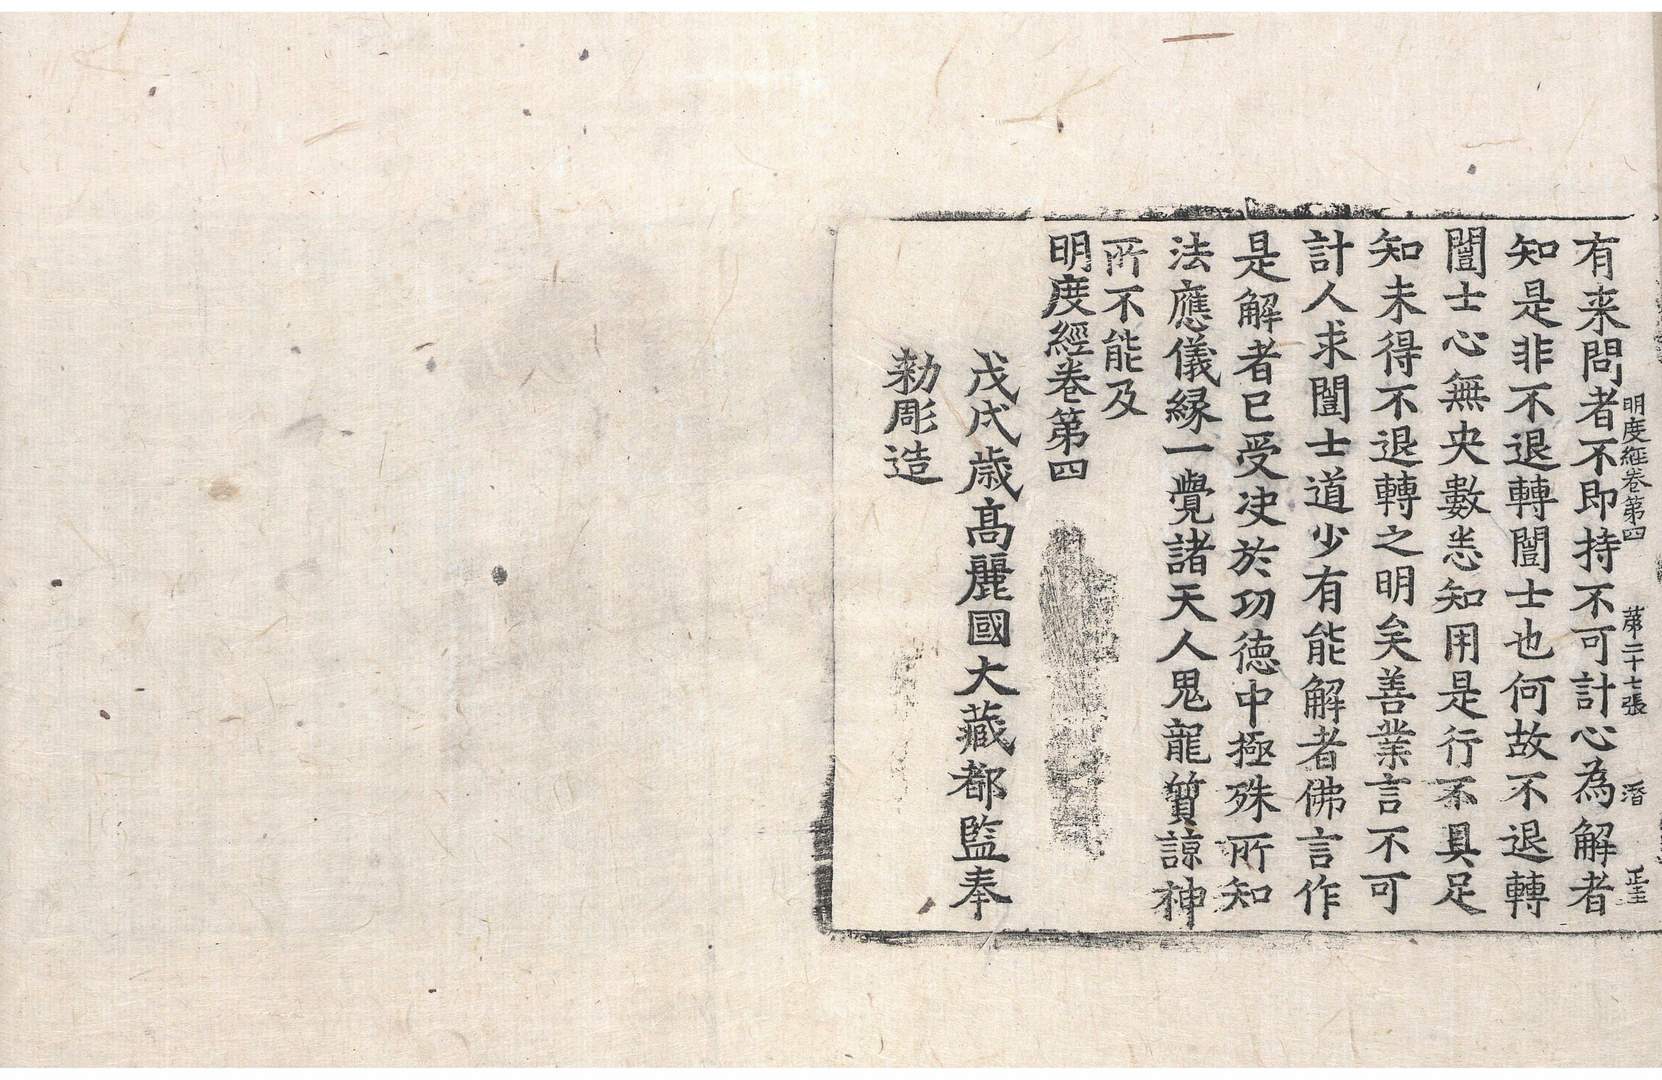 明度経卷第四 苐二十七張 潛 正主
有来問者不即持不可計心為解者
知是非不退轉闓士也何故不退轉
闓士心無央數悉知用是行不具足
知未得不退轉之明矣善業言不可
計人求闓士道少有能解者佛言作
是解者已受决於功徳中極殊所知
法應儀縁一覺諸天人鬼龍質諒神
所不能及
明度經卷第四
戊戌歲髙麗國大藏都監奉
勑彫造